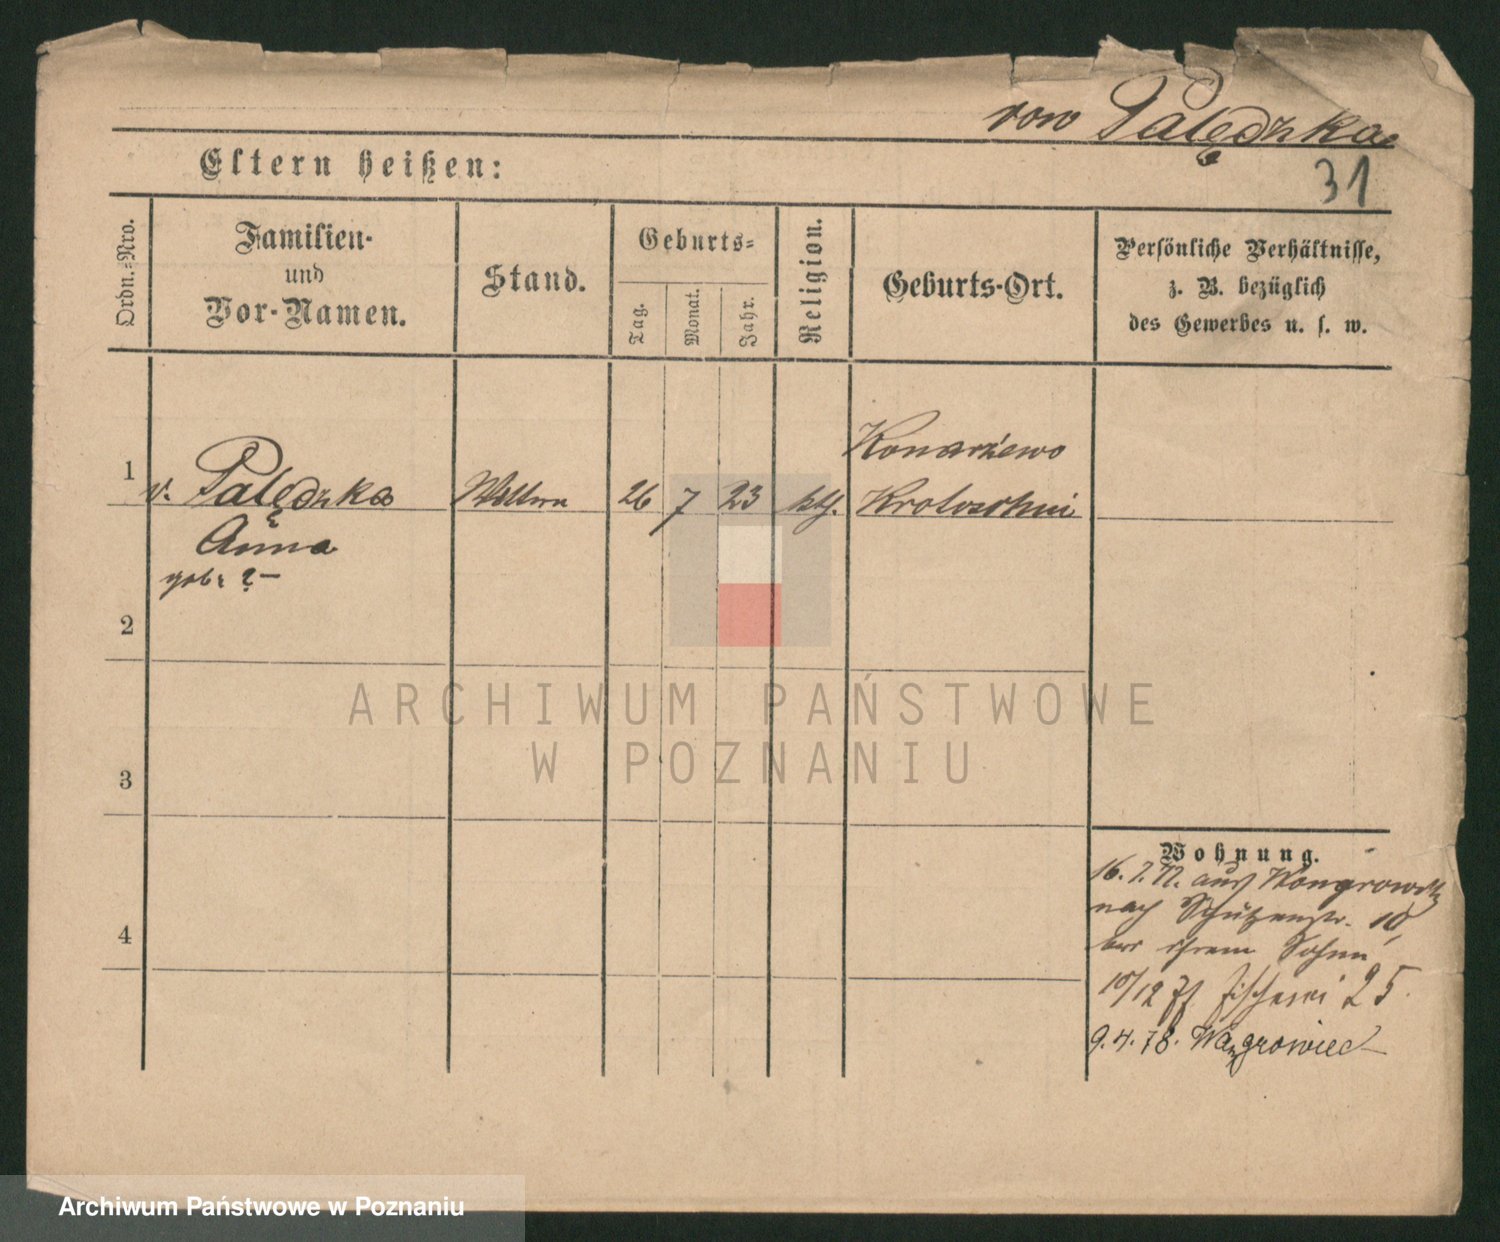 von Palędzka
Eltern heißen:
31
Ordn.-Nro.
Familien-
und
Vor-Namen.
Stand.
Geburts-
Tag.
Monat.
Jahr.
Religion.
Geburts-Ort.
Persönliche Verhältnisse,
z. B. bezüglich
des Gewerbes u. s. w.
1
v. Palędzka
Anna
geb: ?-
26
7
23
kth.
Konarżewo
Krotoschin
2
3
4
Wohnung.
16. 7. 77. aus Wongrowitz
nach Schützenstr. 10,
ihrem Sohn
10/12 77 Fischerei 25
9.4.78. Wągrowiec
ARCHIWUM PAŃSTWOWE
W POZNANIU
Archiwum Państwowe w Poznaniu